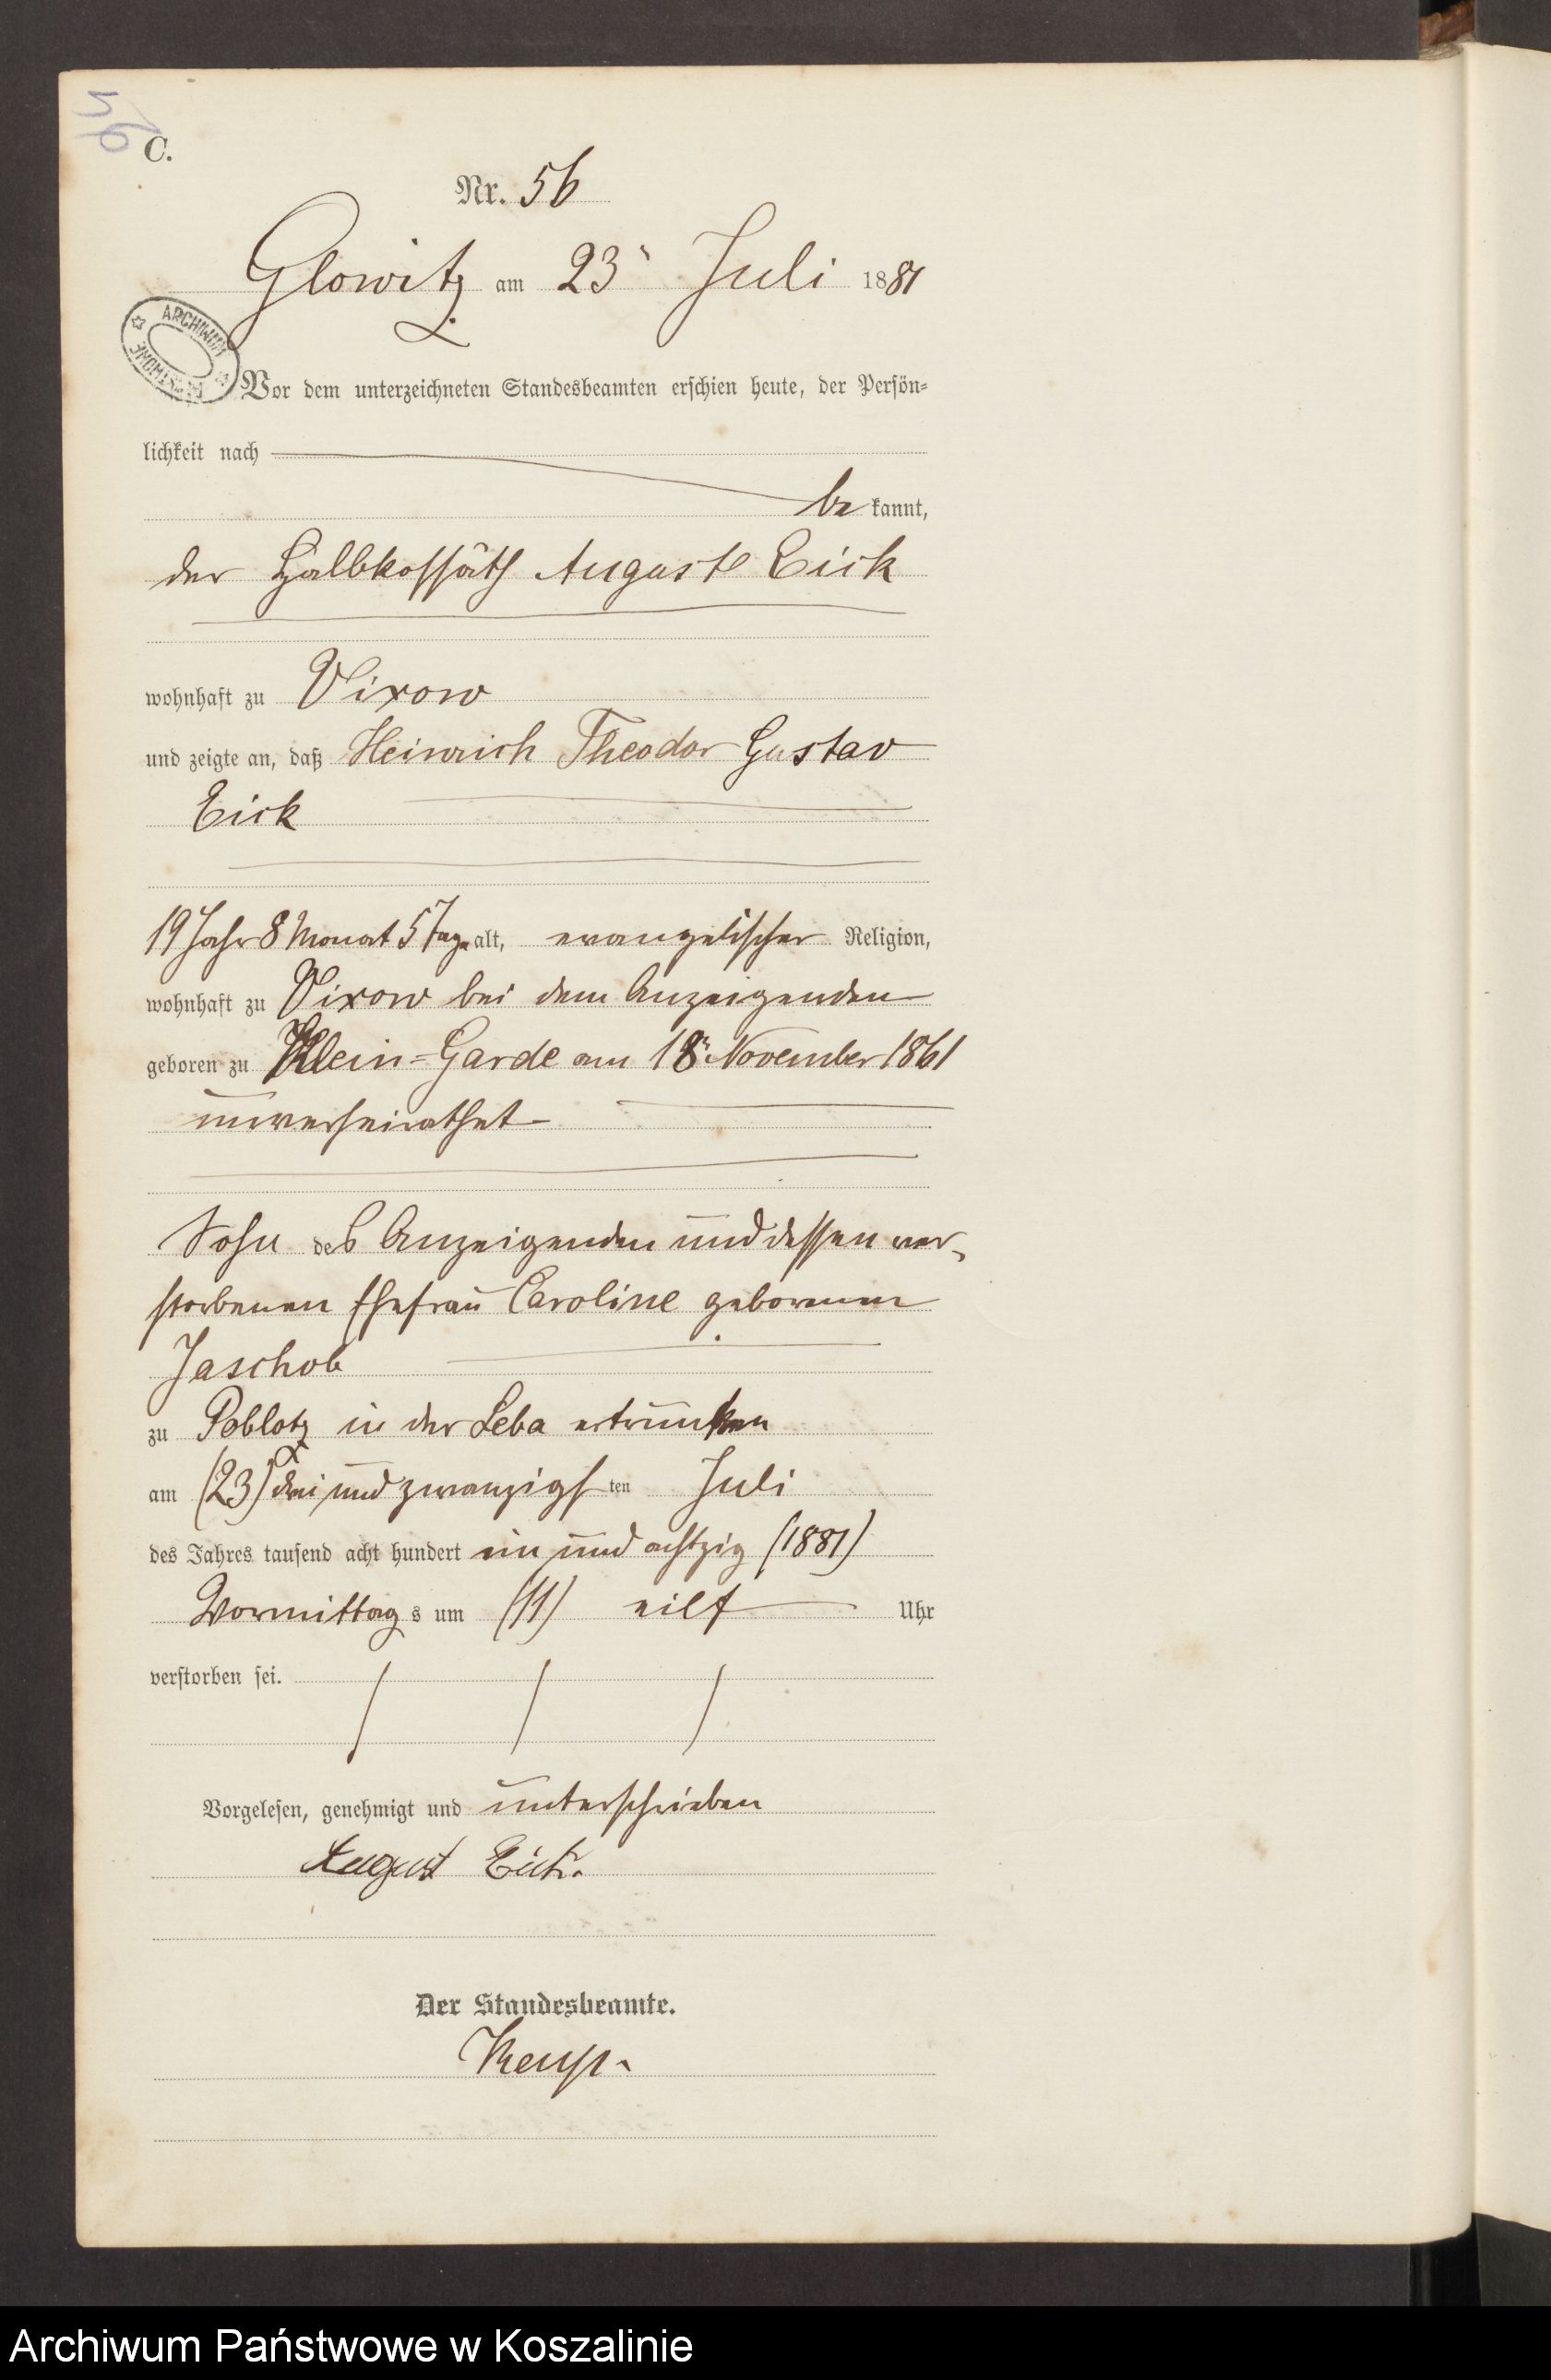 56
C.
Nr. 56
Glowitz am 23t Juli 1881
ARCHIWUM PAŃSTWOWE
Vor dem unterzeichneten Standesbeamten erschien heute, der Persön-
lichkeit nach
be kannt,
der Halbkossäth August Eick
wohnhaft zu Vixow
und zeigte an, daß Heinrich Theodor Gustav
Eick
19 Jahr 8 Monat 5 Tage alt, evangelischer Religion,
wohnhaft zu Vixow bei dem Anzeigenden
geboren zu Klein-Garde am 18t November 1861
unverheirathet
Sohn des Anzeigenden und dessen ver-
storbenen Ehefrau Caroline geborenen
Jaschob
zu Poblotz in der Leba ertrunken
am (23) drei und zwanzigsten Juli
des Jahres tausend acht hundert ein und achtzig (1881)
Vormittags um (11) eilf Uhr
verstorben sei.
Vorgelesen, genehmigt und unterschrieben
August Eick.
Der Standesbeamte.
Archiwum Państwowe w Koszalinie